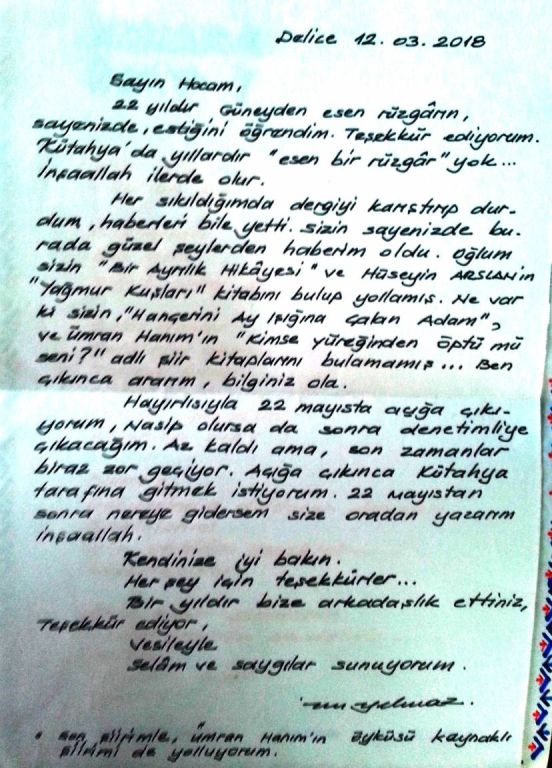 Delice 12.03.2018
Sayın Hocam,
22 yıldır, Güneyden esen rüzgârın,
sayenizde, estiğini öğrendim. Teşekkür ediyorum.
Kütahya'da yıllardır "esen bir rüzgâr" yok...
İnşaallah ilerde olur.
Her sıkıldığımda dergiyi karıştırıp dur-
dum, haberleri bile yetti. Sizin sayenizde bu-
rada güzel şeylerden haberim oldu. Oğlum
sizin "Bir Ayrılık Hikâyesi" ve Hüseyin ARSLAN'ın
"Yağmur Kuşları" kitabını bulup yollamış. Ne var
ki sizin, "Hançerini Ay Işığına Çalan Adam",
ve Ümran Hanım'ın "Kimse yüreğinden öptü mü
seni?" adlı şiir kitaplarını bulamamış... Ben
çıkınca ararım, bilginiz ola.
Hayırlısıyla 22 mayısta açığa çıkı-
yorum, Nasip olursa da sonra denetimliye
çıkacağım. Az kaldı ama, son zamanlar
biraz zor geçiyor. Açığa çıkınca Kütahya
tarafına gitmek istiyorum. 22 mayıstan
sonra nereye gidersem size oradan yazarım
inşaallah.
Kendinize iyi bakın.
Her şey için teşekkürler...
Bir yıldır bize arkadaşlık ettiniz,
Teşekkür ediyor,
Vesileyle
Selâm ve saygılar sunuyorum.
yılmaz.
• Son şiirimle, Ümran Hanım'ın öyküsü kaynaklı
şiirimi de yolluyorum.